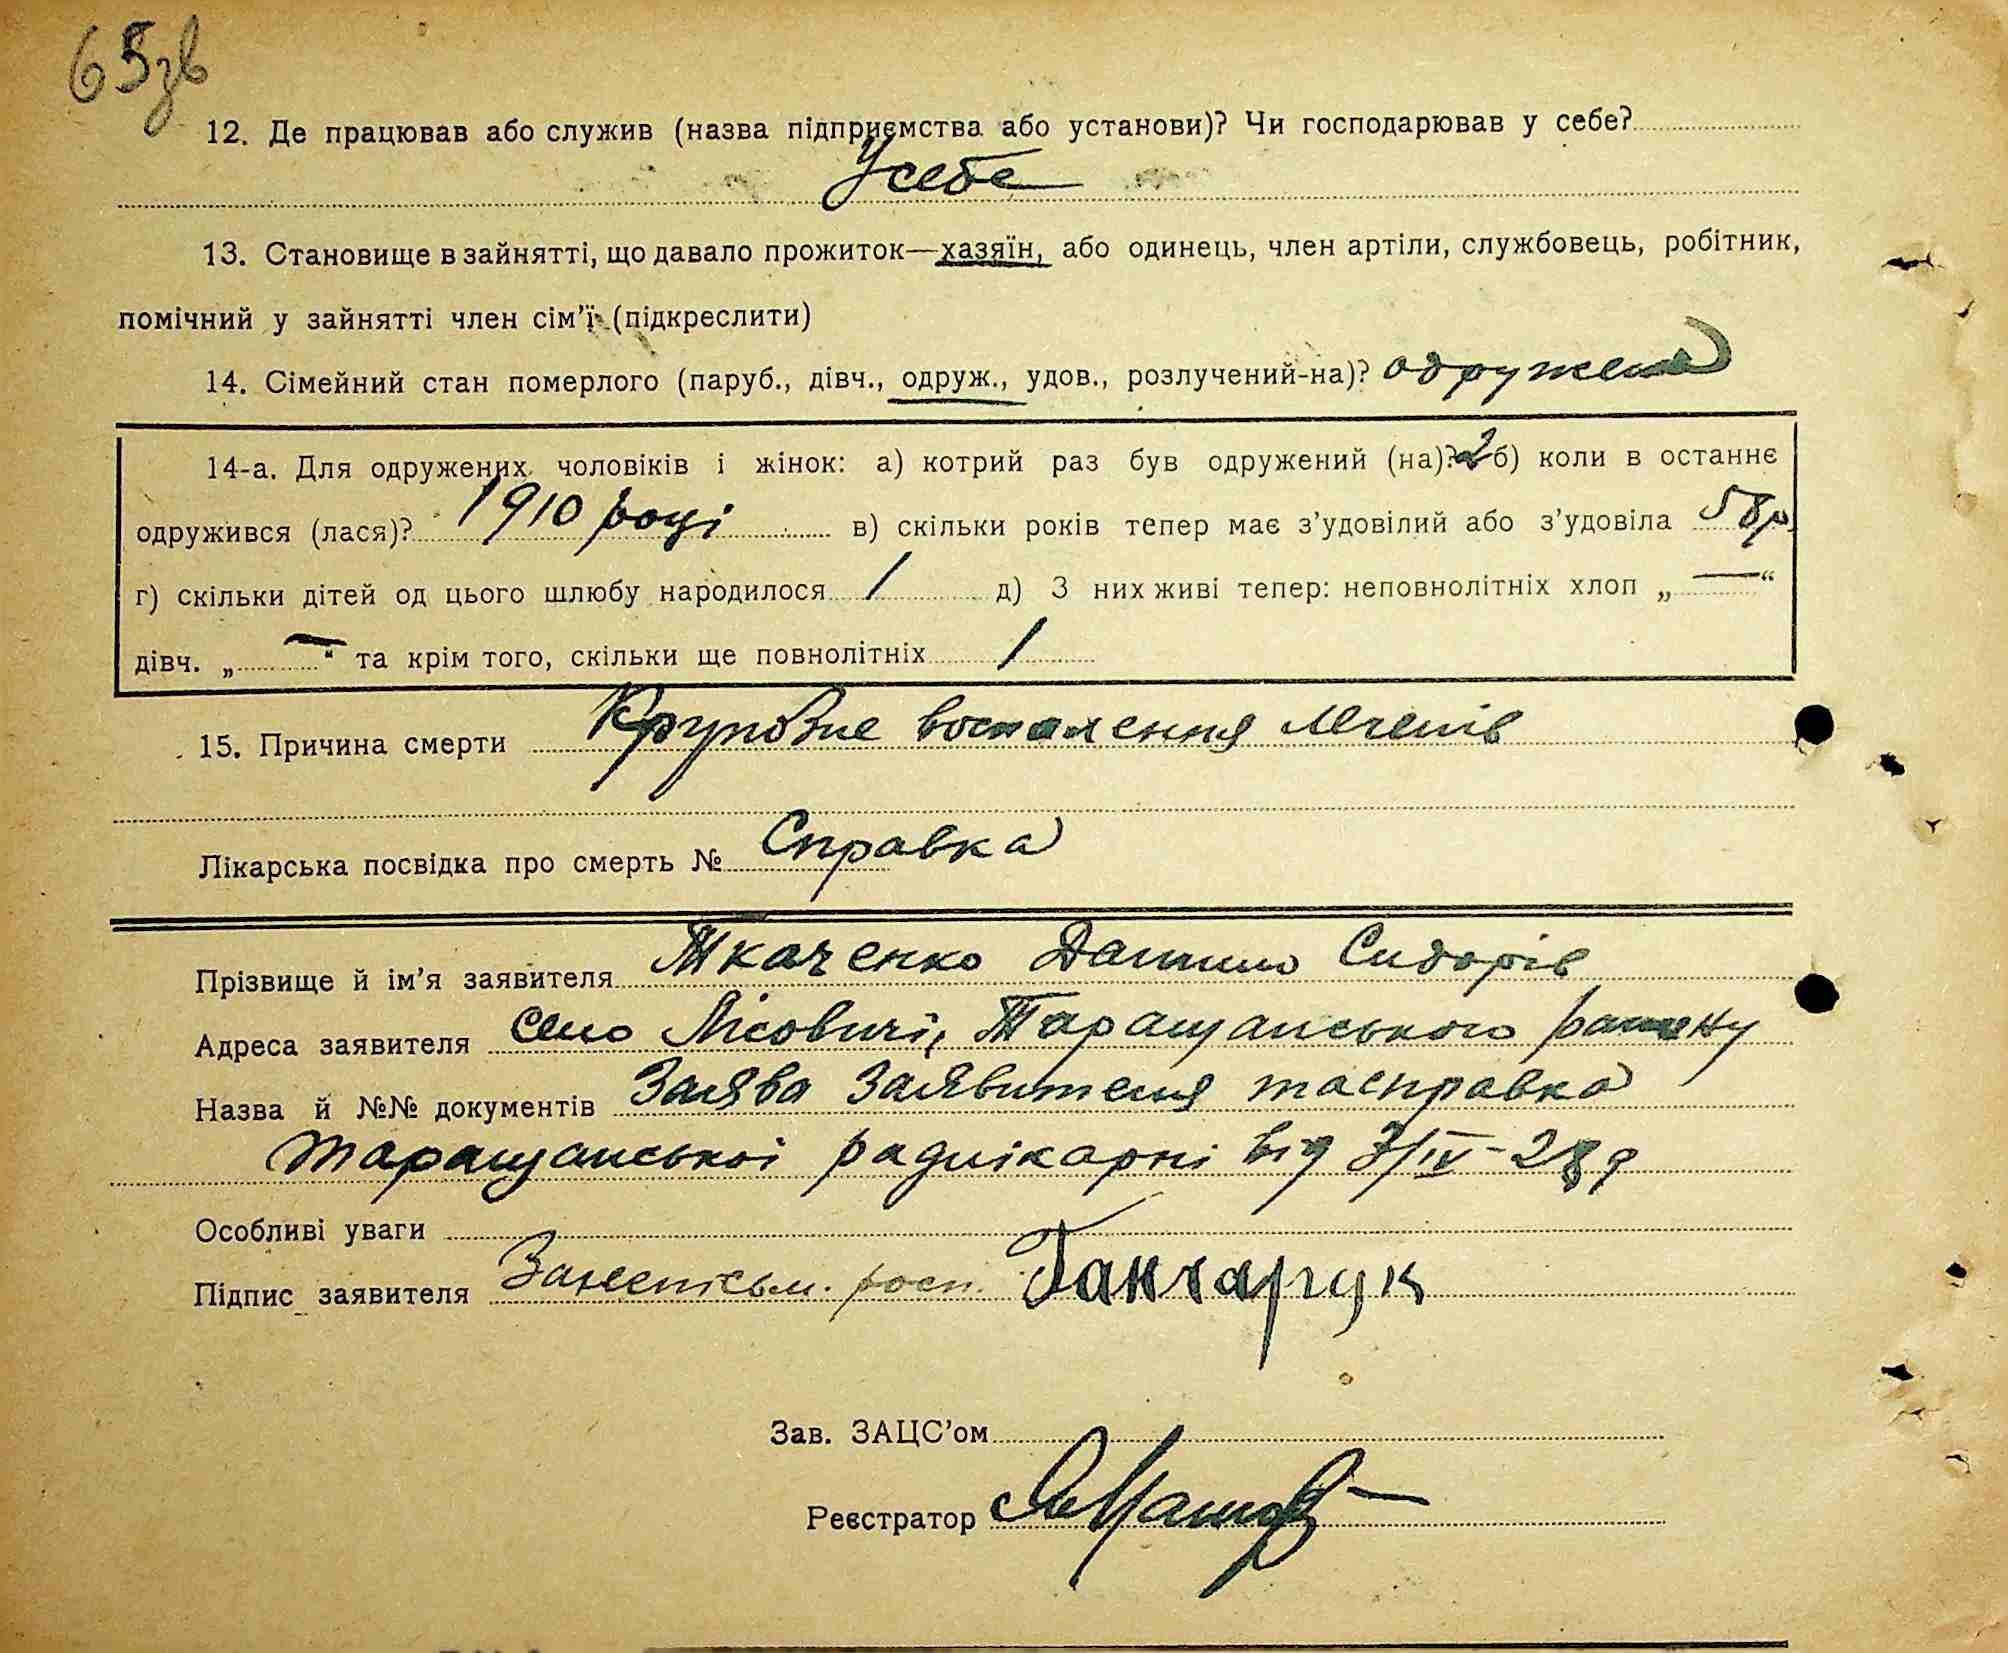 65зв
12. Де працював або служив (назва підприємства або установи)? Чи господарював у себе?
У себе
13. Становище в зайнятті, що давало прожиток—хазяїн, або одинець, член артіли, службовець, робітник,
помічний у зайнятті член сім'ї (підкреслити)
14. Сімейний стан померлого (паруб., дівч., одруж., удов., розлучений-на)? одружена
14-а. Для одружених чоловіків і жінок: а) котрий раз був одружений (на)? 2 б) коли в останнє
одружився (лася)? 1910 році в) скільки років тепер має з'удовілий або з'удовіла 58 р.
г) скільки дітей од цього шлюбу народилося 1 д) З них живі тепер: неповнолітніх хлоп „ — “
дівч. „ — “ та крім того, скільки ще повнолітніх 1
15. Причина смерти Крупозне воспалення легенів
Лікарська посвідка про смерть № Справка
Прізвище й ім'я заявителя Ткаченко Данило Сидорів
Адреса заявителя село Лісовичі, Таращанського району
Назва й №№ документів Заява Заявителя та справка
Таращанської радлікарні від 3/IV-28 р
Особливі уваги
Підпис заявителя За неписьм. росп. Ганчарук
Зав. ЗАЦС'ом
Реєстратор